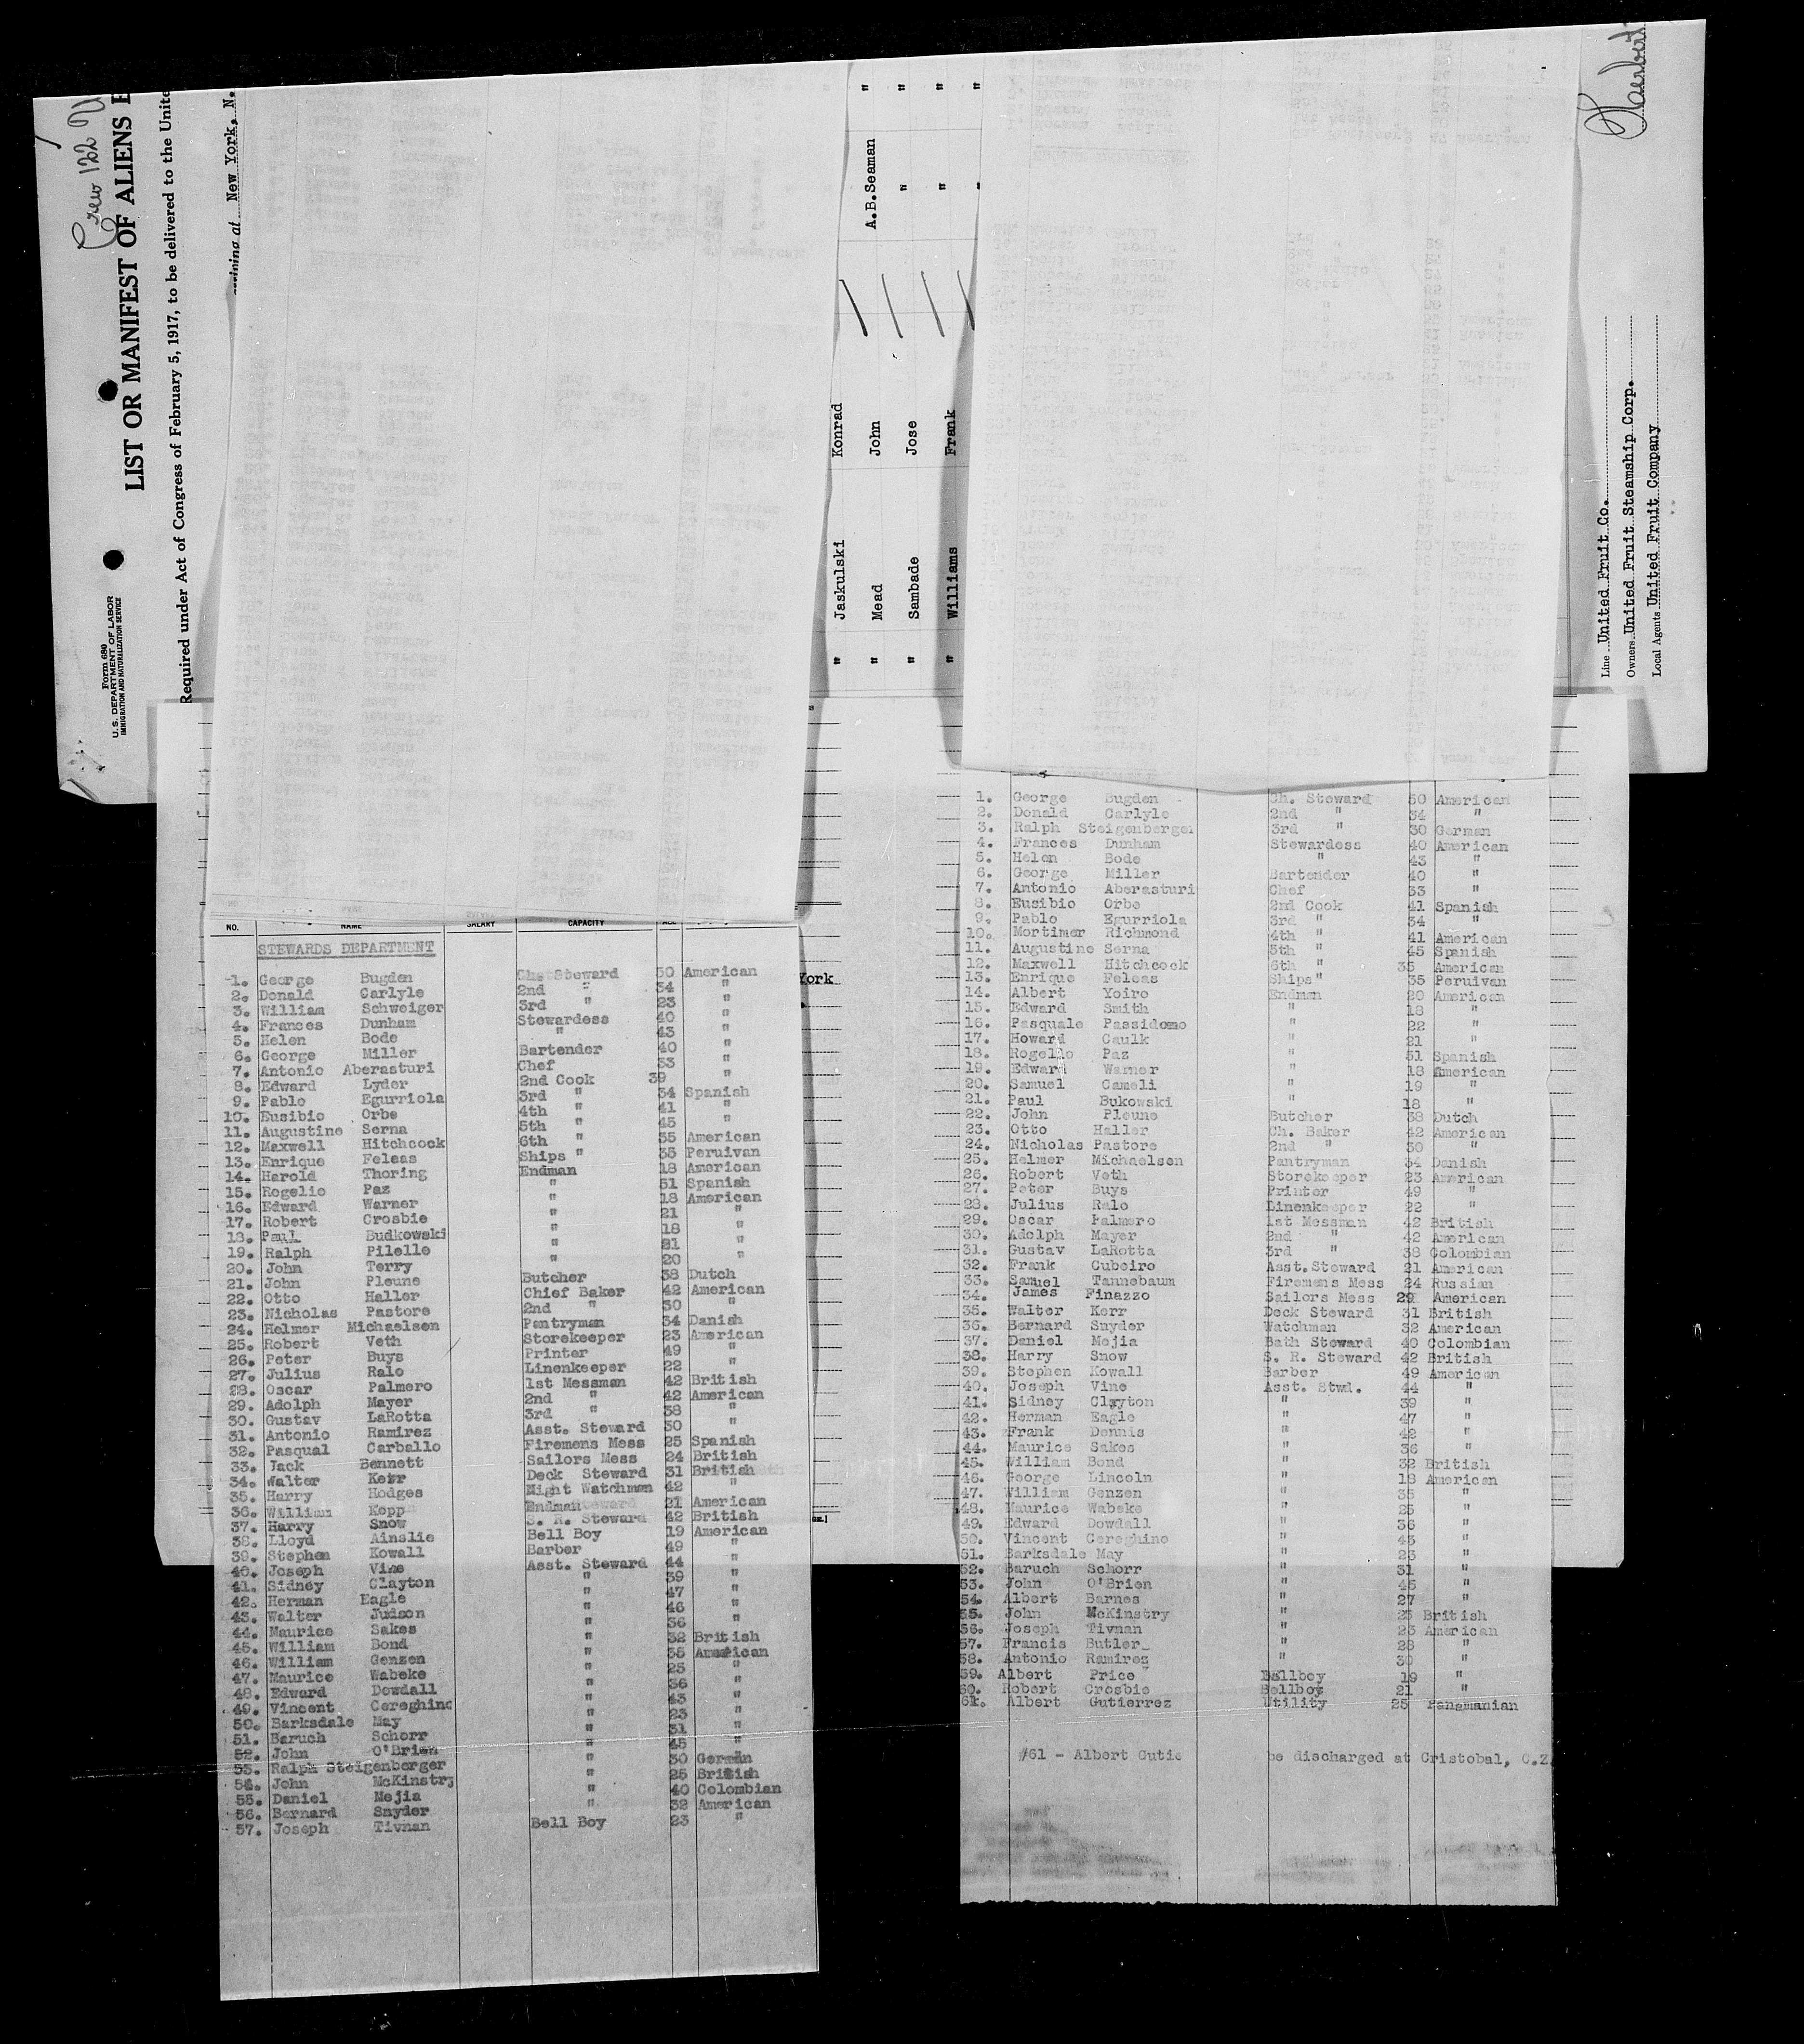 Crew 122
LIST OR MANIFEST OF ALIENS E
Required under Act of Congress of February 5, 1917, to be delivered to the Unite
arriving at New York, N.
Form 680
U. S. DEPARTMENT OF LABOR
IMMIGRATION AND NATURALIZATION SERVICE
" Jaskulski Konrad "
" Mead John A.B.Seaman "
" Sambade Jose " "
" Williams Frank " "
Line United Fruit Co.
Owners United Fruit Steamship Corp.
Local Agents United Fruit Company
Herbert
York
NO. NAME SALARY CAPACITY
STEWARDS DEPARTMENT
1. George Bugden Steward 50 American
2. Donald Carlyle 2nd " 34 "
3. William Schweiger 3rd " 23 "
4. Frances Dunham Stewardess 40 "
5. Helen Bode " 43 "
6. George Miller Bartender 40 "
7. Antonio Aberasturi Chef 33 "
8. Edward Lyder 2nd Cook 39 "
9. Pablo Egurriola 3rd " 34 Spanish
10. Eusibio Orbe 4th " 41 "
11. Augustine Serna 5th " 45 "
12. Maxwell Hitchcock 6th " 35 American
13. Enrique Feleas Ships " 35 Peruivan
14. Harold Thoring Endman 18 American
15. Rogelio Paz " 51 Spanish
16. Edward Warner " 18 American
17. Robert Crosbie " 21 "
18. Paul Budkowski " 18 "
19. Ralph Pilelle " 21 "
20. John Terry " 20 "
21. John Pleune Butcher 38 Dutch
22. Otto Haller Chief Baker 42 American
23. Nicholas Pastore 2nd " 30 "
24. Helmer Michaelsen Pantryman 34 Danish
25. Robert Veth Storekeeper 23 American
26. Peter Buys Printer 49 "
27. Julius Ralo Linenkeeper 22 "
28. Oscar Palmero 1st Messman 42 British
29. Adolph Mayer 2nd " 42 American
30. Gustav LaRotta 3rd " 38 "
31. Antonio Ramirez Asst. Steward 30 "
32. Pasqual Carballo Firemens Mess 25 Spanish
33. Jack Bennett Sailors Mess 24 British
34. Walter Kerr Deck Steward 31 British
35. Harry Hodges Night Watchman 42 "
36. William Kopp Endman 21 American
37. Harry Snow S. R. Steward 42 British
38. Lloyd Ainslie Bell Boy 19 American
39. Stephen Kowall Barber 49 "
40. Joseph Vine Asst. Steward 44 "
41. Sidney Clayton " 39 "
42. Herman Eagle " 47 "
43. Walter Judson " 46 "
44. Maurice Sakes " 36 "
45. William Bond " 32 British
46. William Genzen " 35 American
47. Maurice Wabeke " 25 "
48. Edward Dowdall " 36 "
49. Vincent Cereghino " 43 "
50. Barksdale May " 23 "
51. Baruch Schorr " 31 "
52. John O'Brien " 45 "
53. Ralph Steigenberger " 30 German
54. John McKinstry " 25 British
55. Daniel Mejia " 40 Colombian
56. Bernard Snyder " 32 American
57. Joseph Tivnan Bell Boy 23 "
1. George Bugden Ch. Steward 50 American
2. Donald Carlyle 2nd " 34 "
3. Ralph Steigenberger 3rd " 30 German
4. Frances Dunham Stewardess 40 American
5. Helen Bode " 43 "
6. George Miller Bartender 40 "
7. Antonio Aberasturi Chef 33 "
8. Eusibio Orbe 2nd Cook 41 Spanish
9. Pablo Egurriola 3rd " 34 "
10. Mortimer Richmond 4th " 41 American
11. Augustine Serna 5th " 45 Spanish
12. Maxwell Hitchcock 6th " 35 American
13. Enrique Feleas Ships" 35 Peruivan
14. Albert Yoiro Endman 20 American
15. Edward Smith " 18 "
16. Pasquale Passidomo " 22 "
17. Howard Caulk " 21 "
18. Rogelio Paz " 51 Spanish
19. Edward Warner " 18 American
20. Samuel Cameli " 19 "
21. Paul Bukowski " 18 "
22. John Pleune Butcher 38 Dutch
23. Otto Haller Ch. Baker 42 American
24. Nicholas Pastore 2nd " 30 "
25. Helmer Michaelsen Pantryman 34 Danish
26. Robert Veth Storekeeper 23 American
27. Peter Buys Printer 49 "
28. Julius Ralo Linenkeeper 22 "
29. Oscar Palmero 1st Messman 42 British
30. Adolph Mayer 2nd " 42 American
31. Gustav LaRotta 3rd " 38 Colombian
32. Frank Cubeiro Asst.Steward 21 American
33. Samuel Tannebaum Firemens Mess 24 Russian
34. James Finazzo Sailors Mess 29 American
35. Walter Kerr Deck Steward 31 British
36. Bernard Snyder Watchman 32 American
37. Daniel Mejia Bath Steward 40 Colombian
38. Harry Snow S. R. Steward 42 British
39. Stephen Kowall Barber 49 American
40. Joseph Vine Asst. Stwd. 44 "
41. Sidney Clayton " 39 "
42. Herman Eagle " 47 "
43. Frank Dennis " 42 "
44. Maurice Sakes " 36 "
45. William Bond " 32 British
46. George Lincoln " 18 American
47. William Genzen " 35 "
48. Maurice Wabeke " 25 "
49. Edward Dowdall " 36 "
50. Vincent Cereghino " 43 "
51. Barksdale May " 23 "
52. Baruch Schorr " 31 "
53. John O'Brien " 45 "
54. Albert Barnes " 27 "
55. John McKinstry " 25 British
56. Joseph Tivnan " 23 American
57. Francis Butler " 28 "
58. Antonio Ramirez " 30 "
59. Albert Price Bellboy 19 "
60. Robert Crosbie Bellboy 21 "
61. Albert Gutierrez Utility 25 Panamanian
#61 - Albert Gutie be discharged at Cristobal, C.Z.